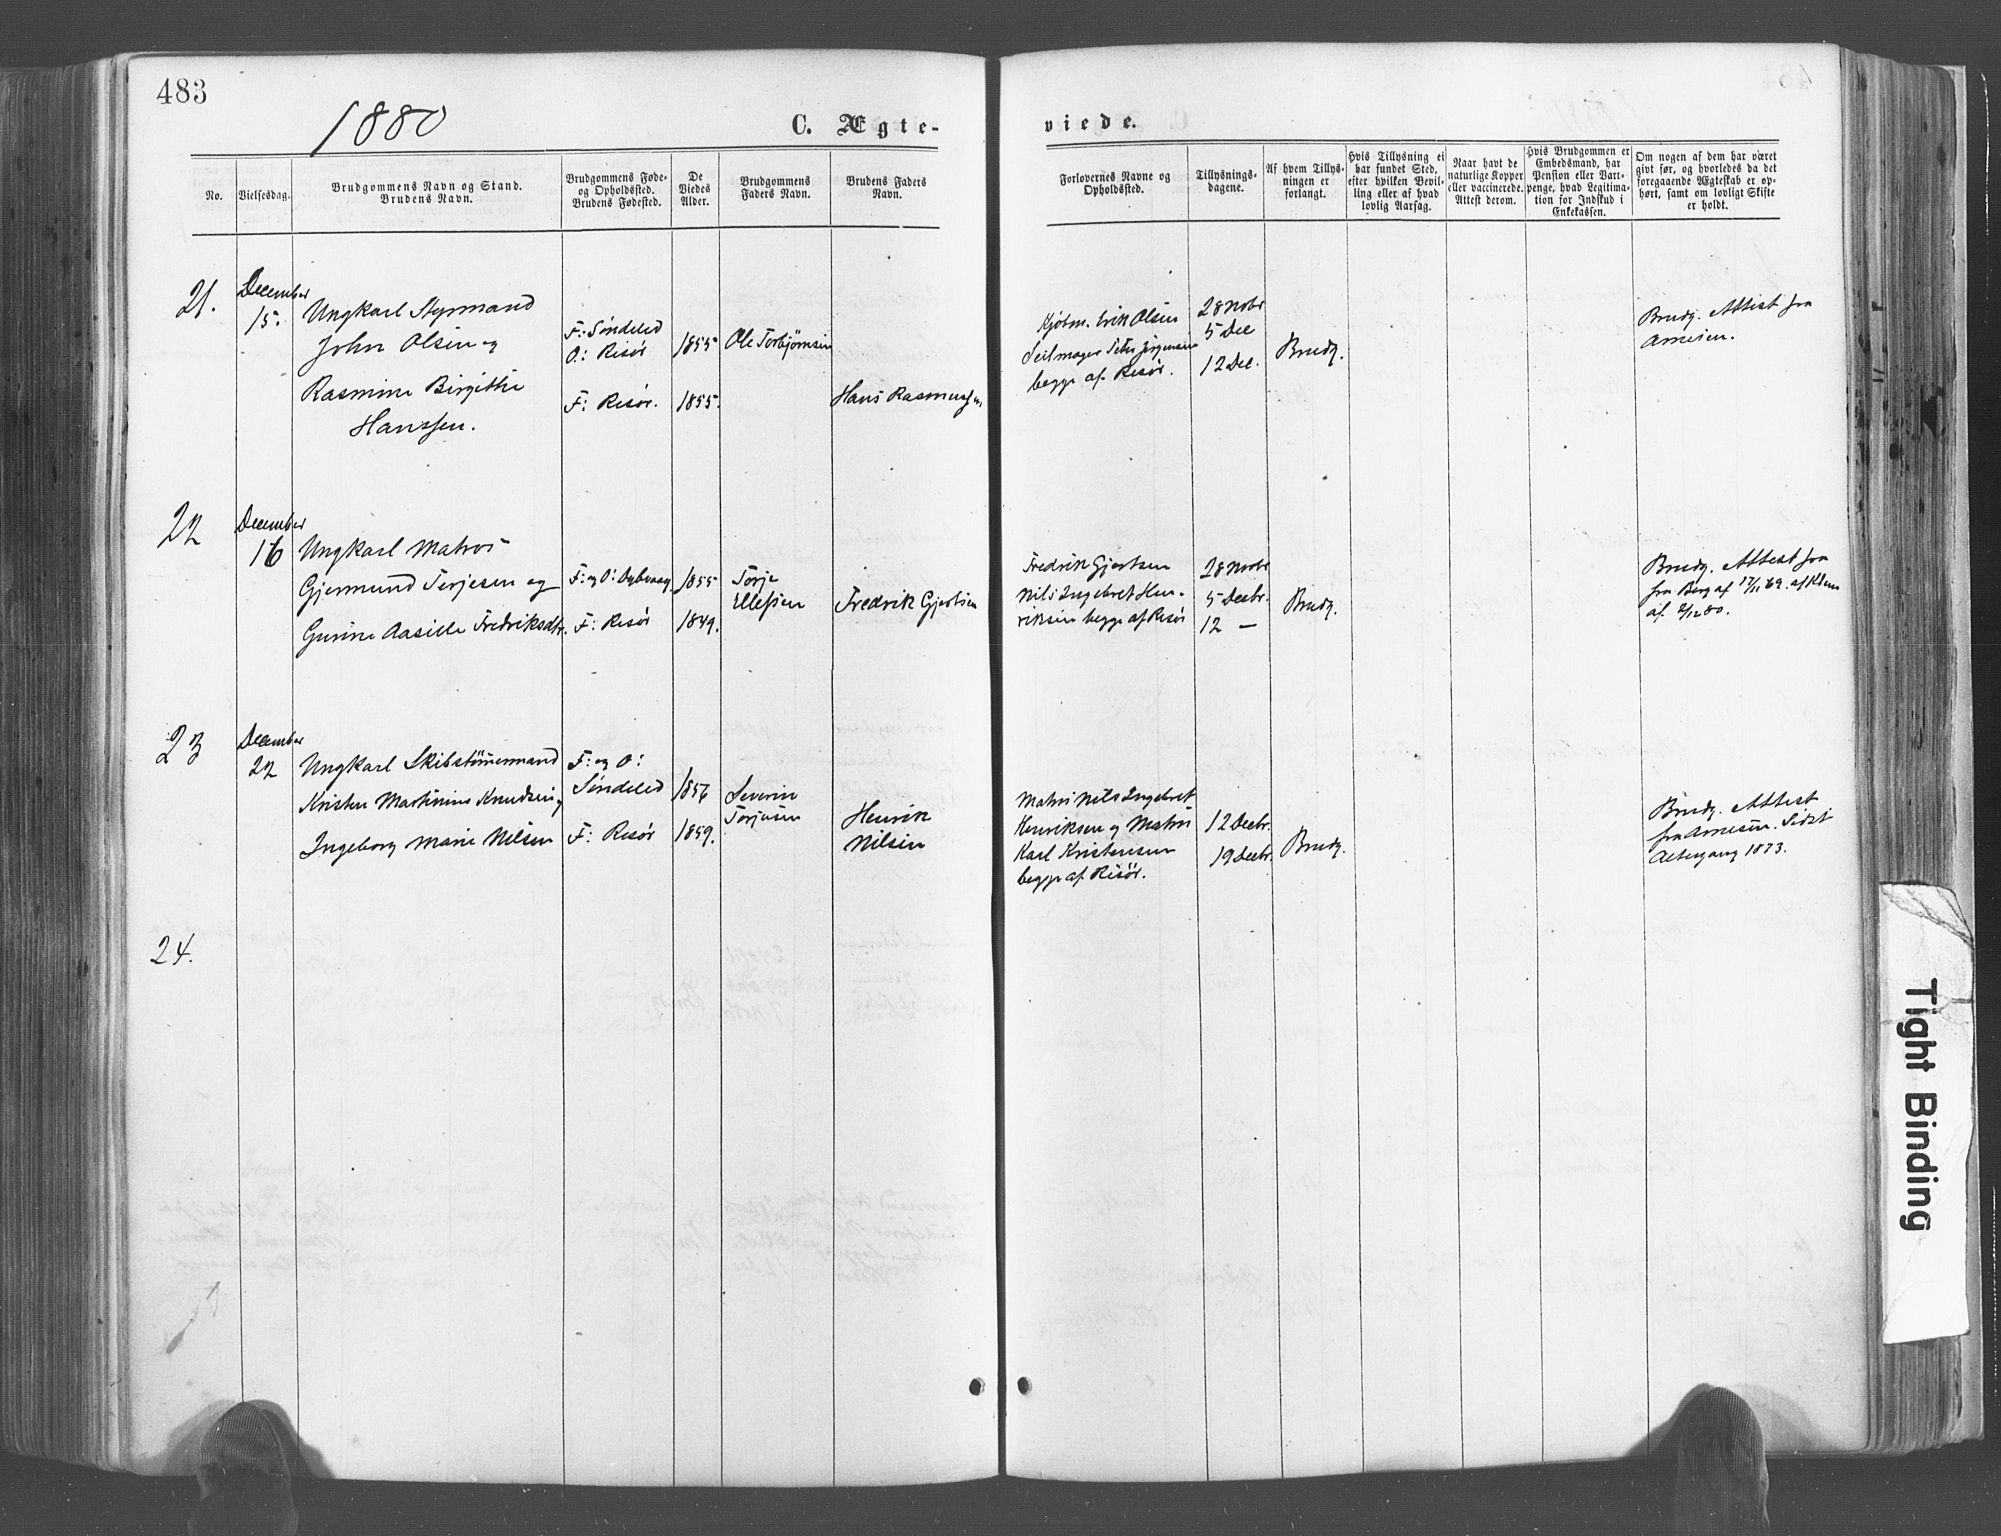 483
1880
C. Ægte-
viede.
No.
Vielsesdag.
Brudgommens Navn og Stand.
Brudens Navn.
Brudgommens Føde-
og Opholdssted.
Brudens Fødested.
De
Viedes
Alder.
Brudgommens
Faders Navn.
Brudens Faders
Navn.
Forlovernes Navne og
Opholdssted.
Tillysnings-
dagene.
Af hvem Tillys-
ningen er
forlangt.
Hvis Tillysning ei
har fundet Sted,
efter hvilken Bevil-
ling eller af hvad
lovlig Aarsag.
Naar havt de
naturlige Kopper
eller vaccinerede.
Attest derom.
Hvis Brudgommen er
Embedsmand, har
Pension eller Vart-
penge, hvad Legitima-
tion for Indskud i
Enkekassen.
Om nogen af dem har været
givt før, og hvorledes da det
foregaaende Ægteskab er op-
hørt, samt om lovligt Skifte
er holdt.
21.
December
15.
Ungkarl Styrmand
John Olsen og
Rasmine Birgitte
Hanssen.
F: Søndeled
O: Risør
F: Risør.
1855
1855.
Ole Torbjørnsen
Hans Rasmussen
Kjøbm. Erik Olsen
Seilmager Peter Jørgensen
begge af Risør.
28 Novbr
5 Dec
12 Dec.
Brudg.
Brudg. Attest fra
Arnesen.
22
December
16
Ungkarl Matros
Gjermund Terjesen og
Gurine Aasille Fredriksdtr.
F: og O: Dybvaag
F: Risør
1855
1849.
Terje
Ellefsen
Fredrik Gjertsen
Fredrik Gjertsen
Nils Ingebret Hen-
riksen begge af Risør
28 Novbr
5 Decbr.
12 —
Brudg.
Brudg. Attest fra
fra Berg af 17/11 69. af
af 2/12 80.
23
December
22
Ungkarl Skibstømmermand
Kristen Martinius Knudsen og
Ingeborg Marie Nilsen
F: og O:
Søndeled
F: Risør
1856
1859.
Severin
Terjesen
Henrik
Nilsen
Matros Nils Ingebret
Henriksen og Matros
Karl Kristensen
begge af Risør.
12 Decbr.
19 Decbr.
Brudg.
Brudg. Attest
fra Arnesen. Sidst
Altergang 1873.
24.
Tight Binding